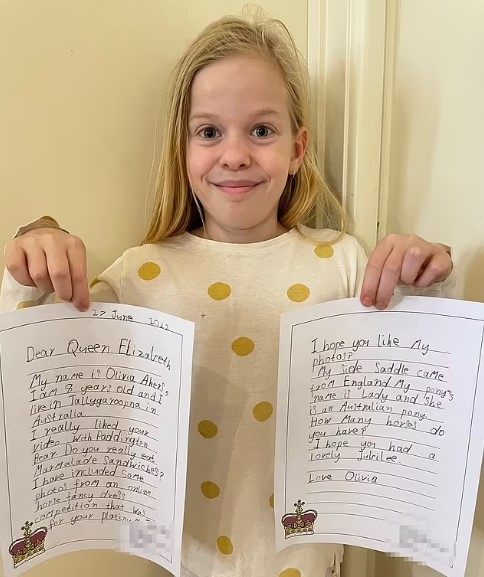 27 June 2022
Dear Queen Elizabeth
My name is Olivia Akers
I am 8 years old and I
live in Tallygaroopna in
Australia
I really liked your
video with Paddington
Bear. Do you really eat
Marmalade Sandwiches?
I have included came
photos from an online
horse fancy dress
competition that was
for your platinum
I hope you like My
photos?
My side Saddle came
from England My pony's
name is Lady and she
is an Australian pony.
How Many horses do
you have?
I hope you had a
lovely Jubilee
Love Olivia